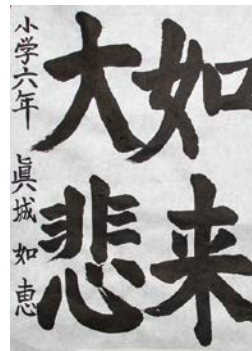 如来
大悲
小学六年 眞城如恵